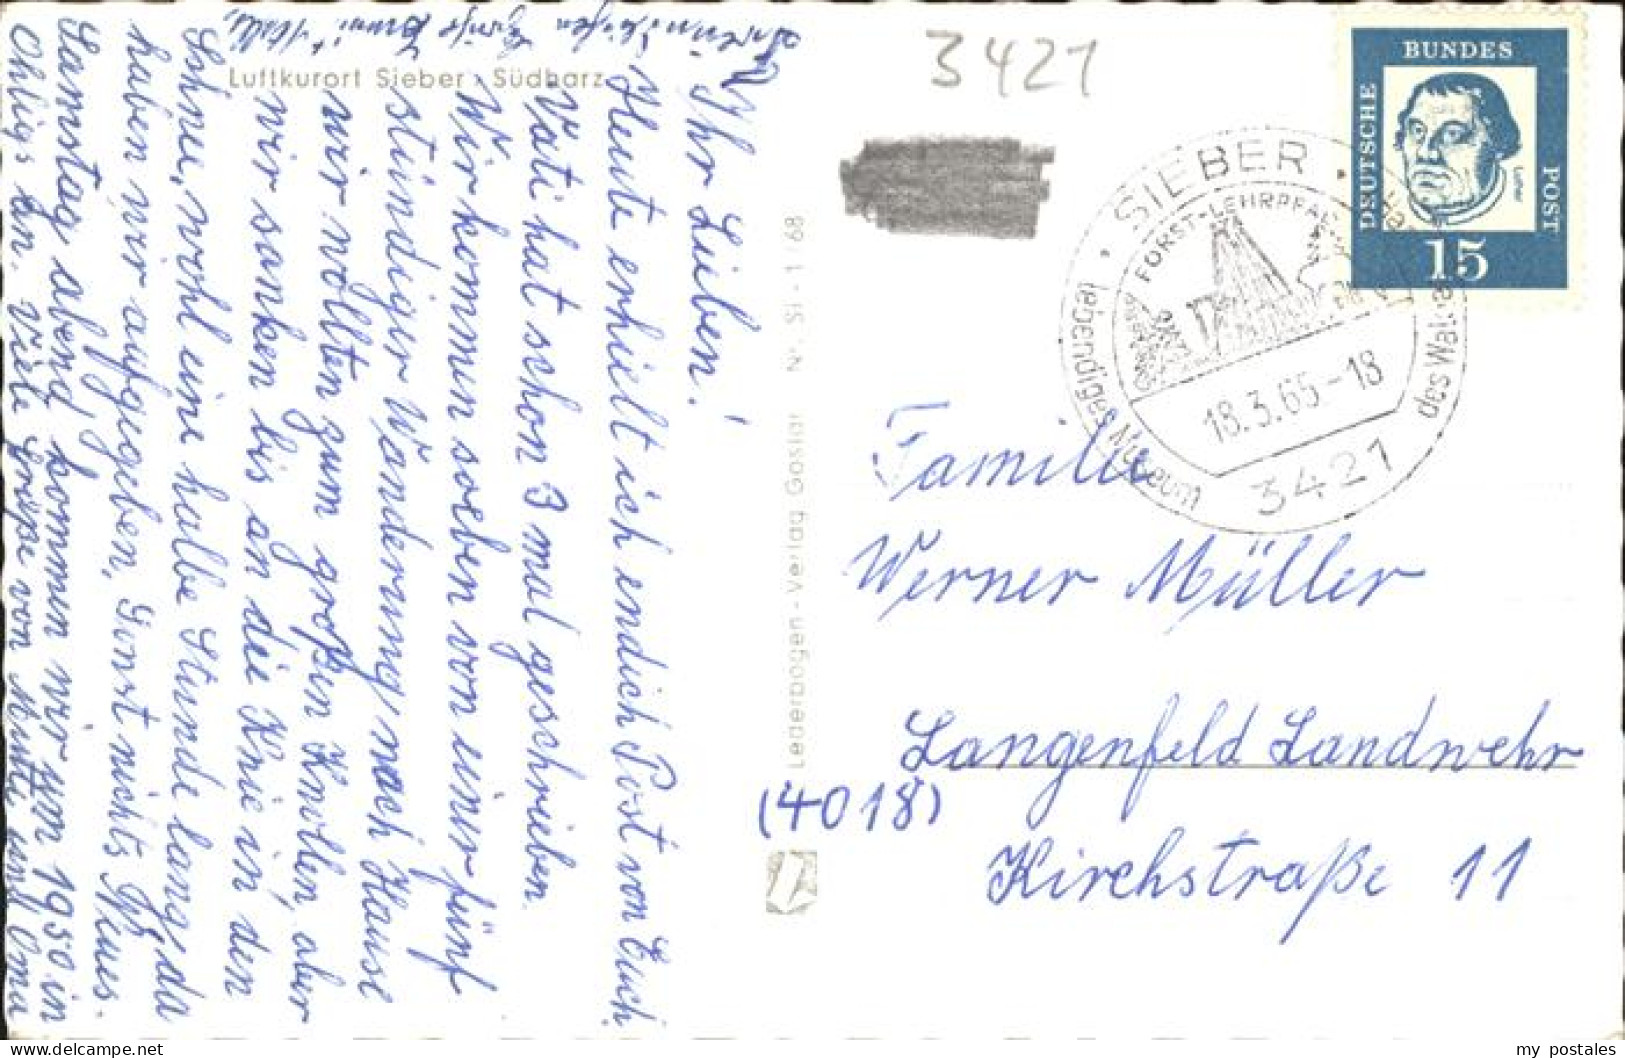 Luftkurort Sieber · Südharz
Ihr Lieben!
Heute erhielt ich endlich Post von Euch.
Vati hat schon 3 mal geschrieben.
Wir kommen soeben von einer fünf
stündiger Wanderung nach Hause
wir wollten zum großen Knollen, aber
wir sanken bis an die Knie in den
Schnee, wohl eine halbe Stunde lang, da
haben wir aufgegeben. Sonst nichts Neues.
Samstag abend kommen wir um 1950 in
Ohligs an. Viele Grüße von Mutti und Oma
Grüße
Lederbogen-Verlag Goslar Nr. Si - 1 / 68
3421
DEUTSCHE
BUNDES
POST
Luther
15
SIEBER
FORST-LEHRPFAD
lebendiges Museum
des Waldes
18.3.65-18
3421
Familie
Werner Müller
Langenfeld Landwehr
(4018)
Kirchstraße 11
my postales